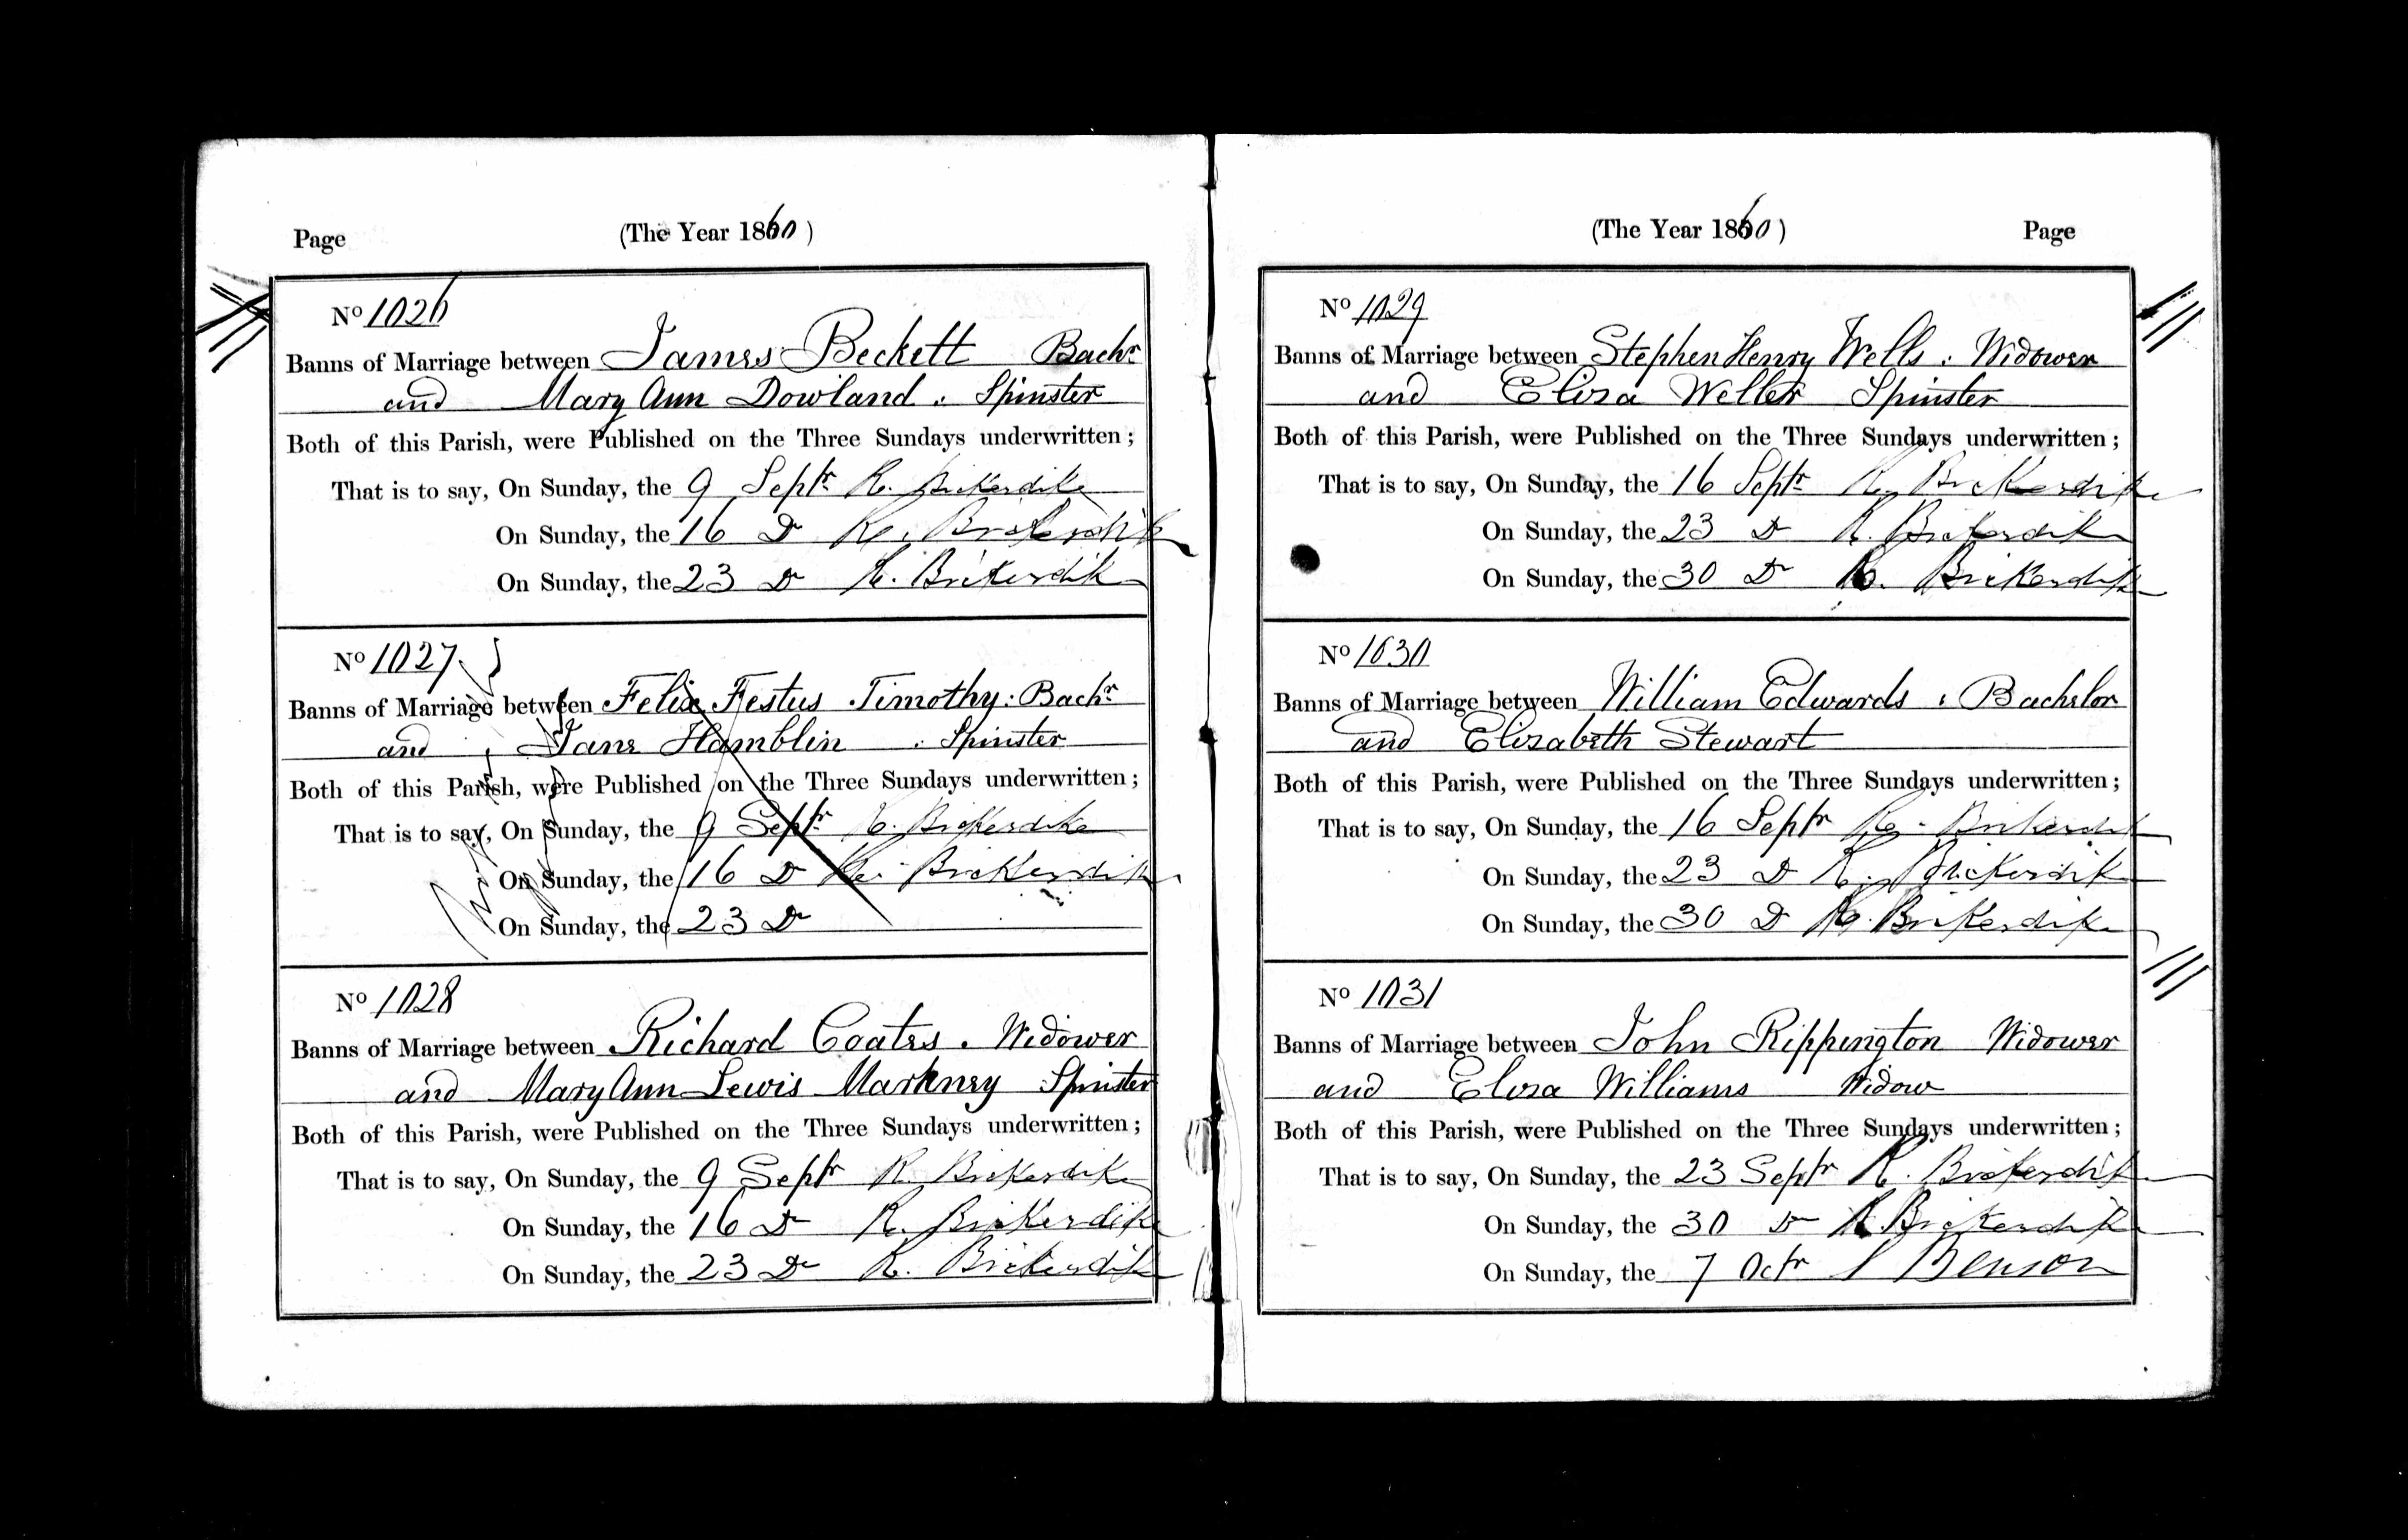 Page (The Year 1860)
No 1026
Banns of Marriage between James Beckett Bachr
and Mary Ann Dowland. Spinster
Both of this Parish, were Published on the Three Sundays underwritten;
That is to say, On Sunday, the 9 Septr R. Bickerdike
On Sunday, the 16 Do R. Bickerdike
On Sunday, the 23 Do R. Bickerdike
No 1027
Banns of Marriage between Felix Festus Timothy: Bachr
and Jane Hamblin : Spinster
Both of this Parish, were Published on the Three Sundays underwritten;
That is to say, On Sunday, the 9 Septr R. Bickerdike
On Sunday, the 16 Do R. Bickerdike
On Sunday, the 23 Do
No 1028
Banns of Marriage between Richard Coates. Widower
and Mary Ann Lewis Markney Spinster
Both of this Parish, were Published on the Three Sundays underwritten;
That is to say, On Sunday, the 9 Septr R. Bickerdike
On Sunday, the 16 Do R. Bickerdike
On Sunday, the 23 Do R. Bickerdike
(The Year 1860) Page
No 1029
Banns of Marriage between Stephen Henry Wells: Widower
and Eliza Weller Spinster
Both of this Parish, were Published on the Three Sundays underwritten;
That is to say, On Sunday, the 16 Septr R. Bickerdike
On Sunday, the 23 Do R. Bickerdike
On Sunday, the 30 Do R. Bickerdike
No 1030
Banns of Marriage between William Edwards: Bachelor
and Elizabeth Stewart
Both of this Parish, were Published on the Three Sundays underwritten;
That is to say, On Sunday, the 16 Septr R. Bickerdike
On Sunday, the 23 Do R. Bickerdike
On Sunday, the 30 Do R. Bickerdike
No 1031
Banns of Marriage between John Rippington Widower
and Eliza Williams Widow
Both of this Parish, were Published on the Three Sundays underwritten;
That is to say, On Sunday, the 23 Septr R. Bickerdike
On Sunday, the 30 Do R. Bickerdike
On Sunday, the 7 Octr Benson